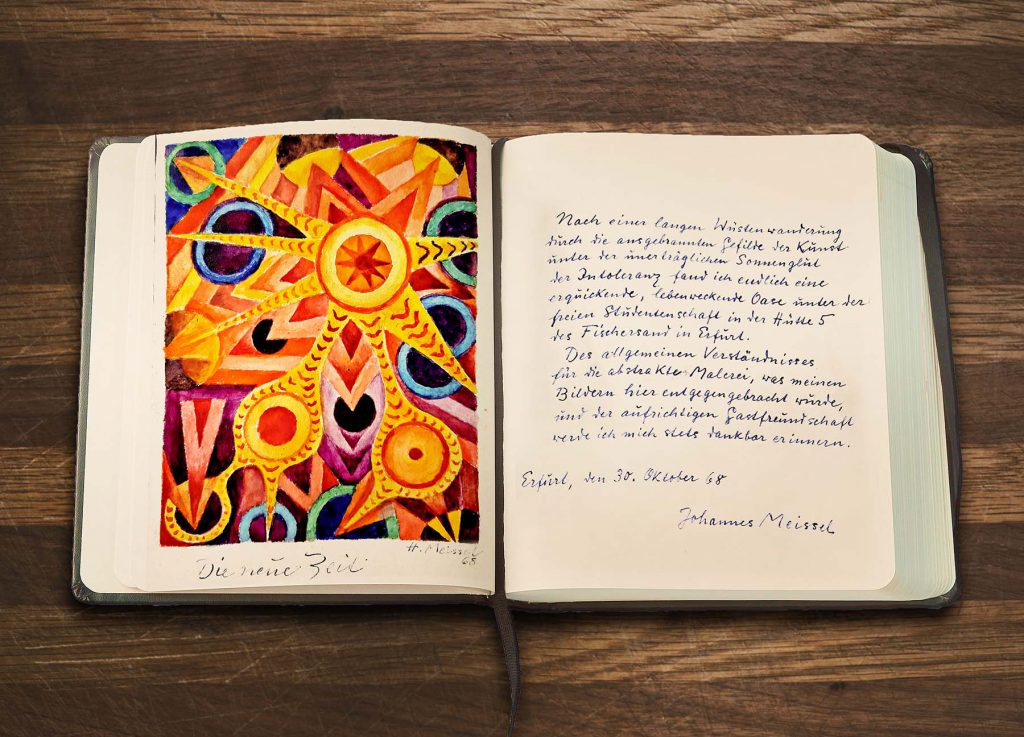 Die neue Zeit
H. Meissel
68
Nach einer langen Wüstenwanderung
durch die ausgebrannten Gefilde der Kunst
unter der unerträglichen Sonnenglut
der Intoleranz fand ich endlich eine
erquickende, lebenweckende Oase unter der
freien Studentenschaft in der Hütte 5
des Fischersand in Erfurt.
Des allgemeinen Verständnisses
für die abstrakte Malerei, was meinen
Bildern hier entgegengebracht wurde,
und der aufrichtigen Gastfreundschaft
werde ich mich stets dankbar erinnern.
Erfurt, den 30. Oktober 68
Johannes Meissel